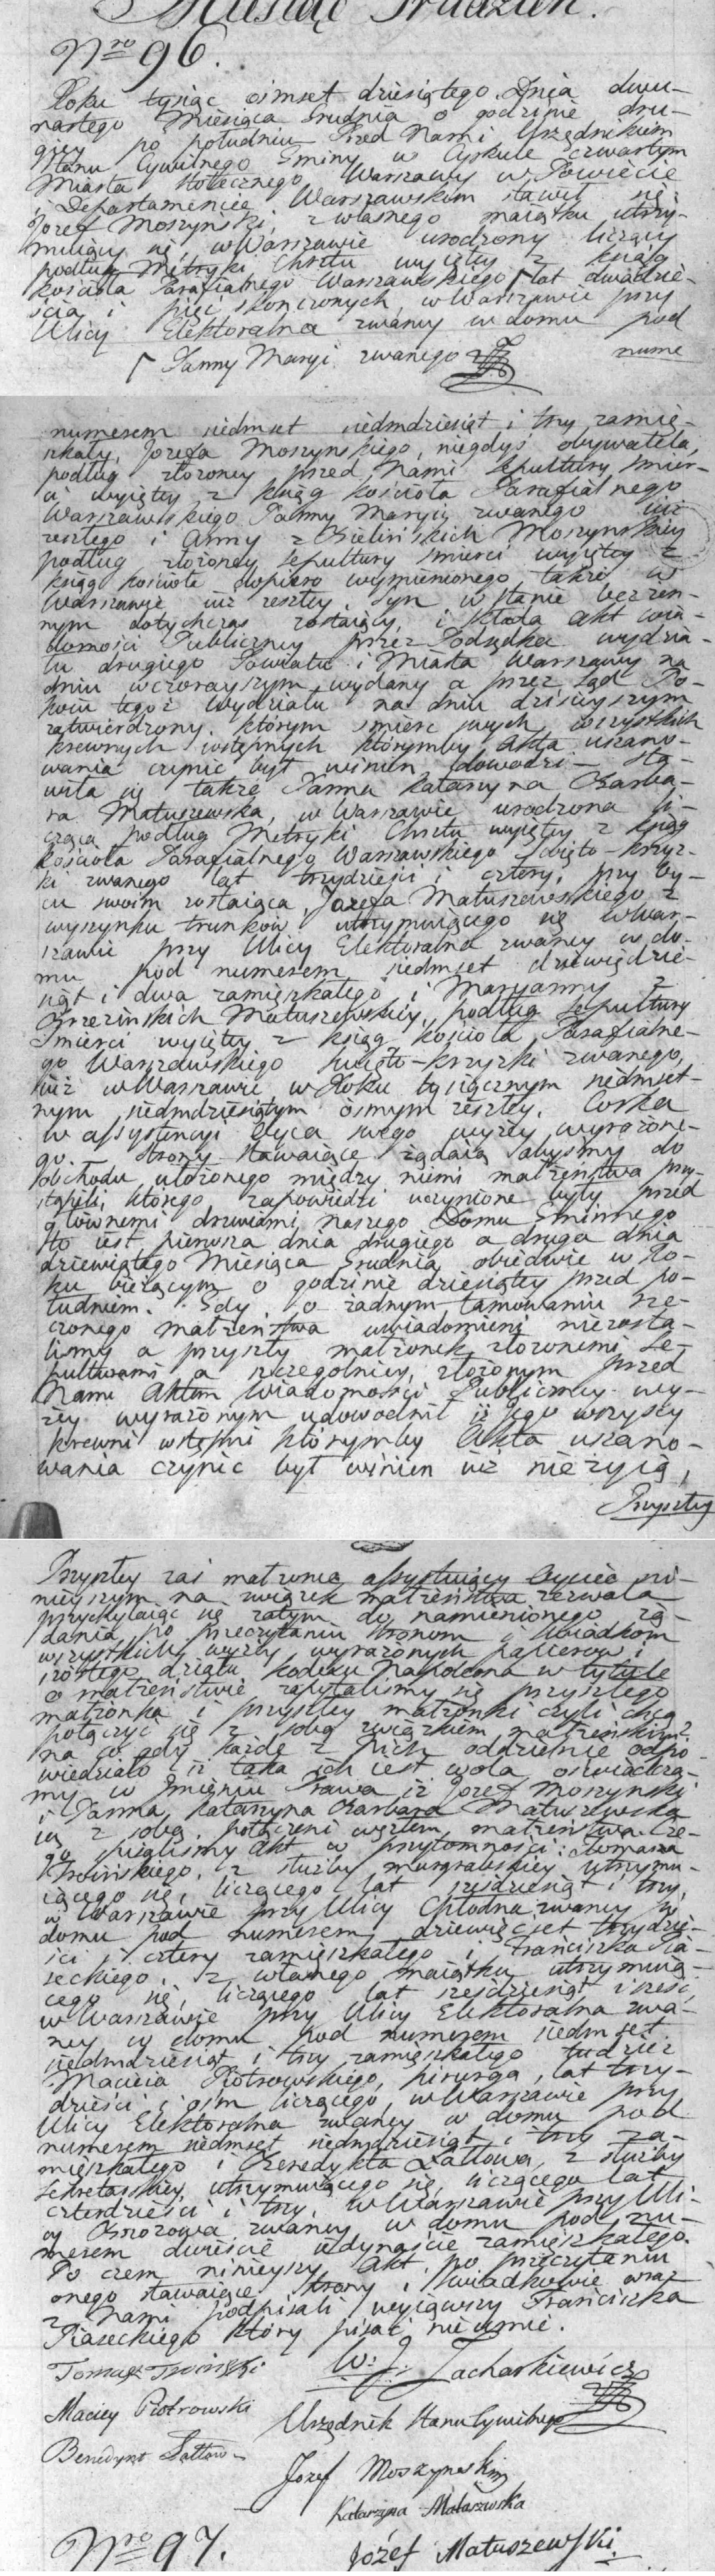 Miesiąc Grudzień.
Nro 96.
Roku tysiąc osmset dziesiątego. Dnia dwu-
nastego Miesiąca Grudnia o godzinie dru-
giey po południu Przed Nami Urzędnikiem
Stanu Cywilnego Gminy w Cyrkule Czwartym
Miasta Stołecznego Warszawy w Powiecie
i Departamencie Warszawskim stawił się
Jozef Moszynski, z własnego maiątku utrzy-
muiący się, w Warszawie urodzony liczący
podług Metryki Chrztu wyiętey z ksiąg
kościoła Parafialnego Warszawskiego ⌈ lat dwadzie-
ścia i pięć skończonych, w Warszawie przy
Ulicy Elektoralna zwaney w domu pod
⌈ Panny Maryi zwanego nume
numerem siedmset siedmdziesiąt i trzy zamie-
szkały, Jozefa Moszynskiego, niegdyś obywatela,
podług złożoney przed Nami Sepultury śmier-
ci wyiętey z ksiąg kościoła Parafialnego
Warszawskiego Panny Maryi zwanego już
zeszłego i Anny z Zielińskich Moszynskiey
podług złożoney sepultury śmierci wyiętey z
ksiąg kościoła dopiero wymienionego także w
Warszawie już zeszłey, Syn w stanie bezżen-
nym dotychczas zostaiący, i składa Akt wia-
domości Publiczney przez Podsędka wydzia-
łu drugiego Powiatu i Miasta Warszawy na
dniu wczorayszym wydany a przez Sąd Po-
koiu tegoż Wydziału na dniu dzisieyszym
zatwierdzony, którym śmierć swych wszystkich
krewnych wstępnych którymby Akta uszano-
wania czynić był winien dowodzi – Sta-
wiła się także Panna Katarzyna Barba-
ra Matuszewska, w Warszawie urodzona li-
cząca podług Metryki Chrztu wyiętey z ksiąg
kościoła Parafialnego Warszawskiego Swięto-krzyz-
ki zwanego lat trzydzieści i cztery, przy Oy-
cu swoim zostaiąca, Jozefa Matuszewskiego z
wyszynku trunków utrzymuiącego się w War-
szawie przy Ulicy Elektoralna zwaney w do-
mu pod numerem siedmset dziewiędzie-
siąt i dwa zamieszkałego i Maryanny z
Brzezinskich Matuszewskiey, podług Sepultury
Smierci wyiętey z ksiąg kościoła Parafialne-
go Warszawskiego Swięto-krzyzki zwanego,
już w Warszawie w Roku tysiącznym siedmset-
nym siedmdziesiątym osmym zeszłey, Corka
w assystencyi Oyca swego wyżey wyrażone-
go. Strony stawaiące żądaią abyśmy do
obchodu ułożonego między niemi małżeństwa przy-
stąpili, którego zapowiedzi uczynione były przed
głównemi drzwiami naszego Domu Gminnego
to iest pierwsza dnia drugiego a druga dnia
dziewiątego Miesiąca Grudnia obiedwie w Ro-
ku bieżącym o godzinie dziesiątey przed po-
łudniem. Gdy o żadnym tamowaniu rze-
czonego małżeństwa uwiadomieni niezosta-
liśmy a przyszły małżonek złożonemi Se-
pulturami a szczególniey, złożonym przed
Nami Aktem Wiadomości Publiczney wy-
żey wyrażonym udowodnił iż jego wszyscy
krewni wstępni którymby Akta uszano-
wania czynić był winien już nie żyią,
Przyszłey
Przyszłey zaś małżonce assystuiący Oyciec ni-
nieyszym na związek małżeństwa zezwala
przychylaiąc się zatym do namienionego żą-
dania po przeczytaniu Stronom i Swiadkom
wszystkich wyżey wyrażonych papierow i
szóstego działu kodexu Napoleona w tytule
o małżeństwie zapytaliśmy się przyszłego
małżonka i przyszłey małżonki czyli chcą
połączyć się z sobą związkiem małżeńskim?
na co gdy każde z Nich oddzielnie odpo-
wiedziało iż taka ich iest wola oświadcza-
my w Imieniu Prawa iż Jozef Moszynski
i Panna Katarzyna Barbara Matuszewska
są z sobą połączeni węzłem małżeństwa. Cze-
go spisaliśmy Akt w przytomności: Tomasza
Troińskiego, z służby murgrabskiey utrzymu-
iącego się, liczącego lat sześdziesiąt i trzy,
w Warszawie przy Ulicy Chłodna zwaney w
domu pod numerem dziewięćset trzydzie-
ści i cztery zamieszkałego i Franciszka Pia-
seckiego, z własnego maiątku utrzymuią-
cego się, liczącego lat sześdziesiąt i sześć,
w Warszawie przy Ulicy Elektoralna zwa-
ney w domu pod numerem siedmset
siedmdziesiąt i trzy zamieszkałego tudzież
Macieia Piotrowskiego, chirurga, lat trzy-
dzieści i ośm liczącego, w Warszawie przy
Ulicy Elektoralna zwaney w domu pod
numerem siedmset siedmdziesiąt i trzy za-
mieszkałego i Benedykta Lattowa, z służby
sekretarskiey utrzymuiącego się, liczącego lat
czterdzieści i trzy, w Warszawie przy Uli-
cy Bozozowa zwaney w domu pod nu-
merem dwieście iedynaście zamieszkałego.
Po czem ninieyszy Akt po przeczytaniu
onego stawaiące Strony i Swiadkowie wraz
z Nami podpisali wyiąwszy Franciszka
Piaseckiego który pisać nieumie.
Tomasz Troiński W: J: Zacharkiewicz
Maciey Piotrowski Urzędnik Stanu Cywilnego
Benedykt Lattow
Jozef Moszynski
Katarzyna Matuszewska
Nro 97. Józéf Matuszewski.